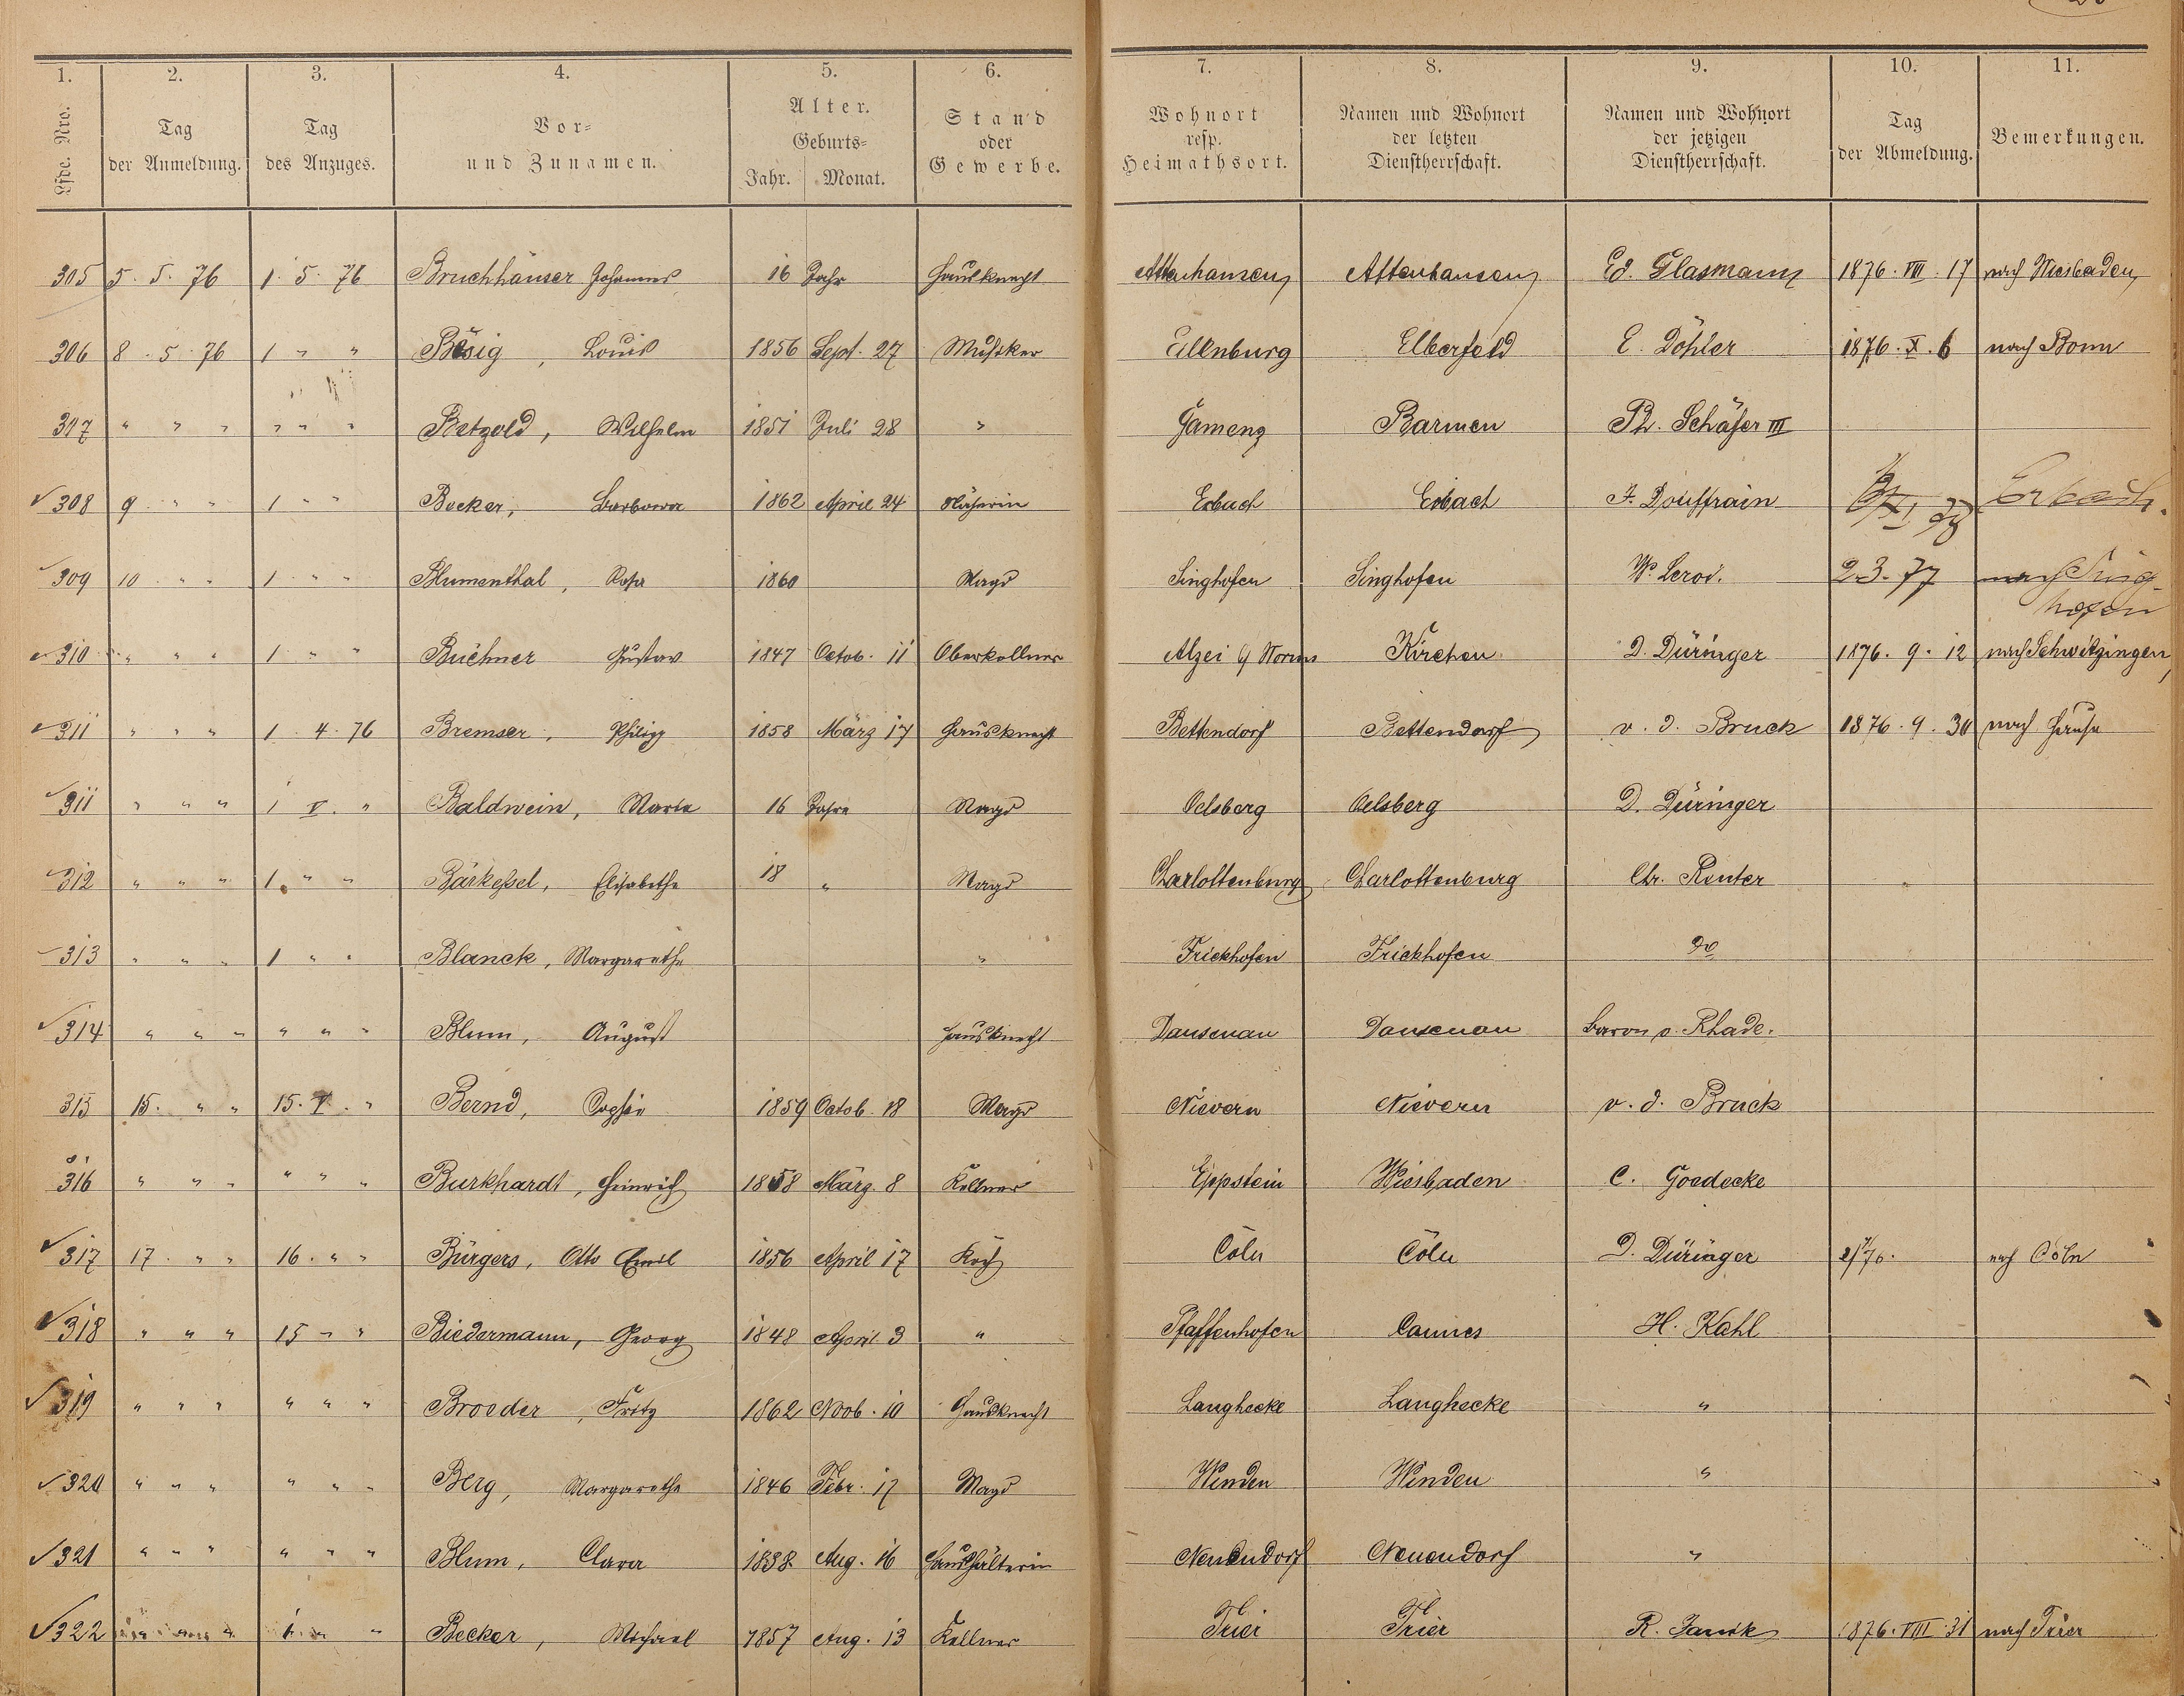 1. 2. 3. 4. 5. 6. 7. 8. 9. 10. 11.
Lfde. Nro. Tag der Anmeldung. Tag des Anzuges. Vor= und Zunamen. Alter. Geburts= Jahr. Monat. Stand oder Gewerbe. Wohnort resp. Heimathsort. Namen und Wohnort der letzten Dienstherrschaft. Namen und Wohnort der jetzigen Dienstherrschaft. Tag der Abmeldung. Bemerkungen.
305 5. 5. 76 1. 5. 76 Bruchhäuser Johannes 16 Jahr Hausknecht Attenhausen Attenhausen Ed. Glasmann 1876. VIII. 17 nach Wiesbaden
306 8. 5. 76 1 " " Bösig, Louis 1856 Sept. 27 Musiker Eilenburg Elberfeld E. Döhler 1876. X. 6 nach Bonn
307 " " " " " " Betzold, Wilhelm 1851 Juli 28 " Gamenz Barmen Ph. Schäfer III
308 9 " " 1 " " Becker, Barbara 1862 April 24 Näherin Erbach Erbach F. Douffrain Erbach.
309 10 " " 1 " " Blumenthal, Rosa 1860 Magd Singhofen Singhofen W. Lerod. 2.3.77 nach Sing-
hofen
310 " " " 1 " " Büchner Gustav 1847 Octob. 11 Oberkellner Alzei b/ Worms Kirchen D. Düringer 1876. 9. 12 nach Schwitzingen
311 " " " 1. 4. 76 Bremser, Philipp 1858 März 17 Hausknecht Bettendorf Bettendorf v. d. Bruck 1876. 9. 30 nach Hause
311 " " " 1 V. " Baldwein, Maria 16 Jahre Magd Oelsberg Oelsberg D. Düringer
312 " " " 1. " " Bärkeßel, Elisabethe 18 " Magd Charlottenburg Charlottenburg Chr. Reuter
313 " " " 1 " " Blanck, Margarethe " Frickhofen Frickhofen do
314 " " " " " " Blum, August Hausknecht Dausenau Dausenau Baron v. Rhade.
315 15. " " 15. V. " Bernd, Sophie 1859 Octob. 18 Magd Nievern Nievern v. d. Bruck
316 " " " " " " Burkhardt, Heinrich 1858 März. 8 Kellner Eppstein Wiesbaden C. Goedecke
317 17. " " 16. " " Bürgers, Otto Emil 1856 April 17 Koch Cöln Cöln D. Düringer nach Cöln
318 " " " 15 " " Biedermann, Georg 1848 April 3 " Pfaffenhofen Cannes H. Kahl
319 " " " " " " Broeder, Fritz 1862 Nob. 10 Hausknecht Langhecke Langhecke "
320 " " " " " " Berg, Margarethe 1846 Febr. 17 Magd Winden Winden "
321 " " " " " " Blum, Clara 1838 Aug. 16 Haushälterin Neuendorf Neuendorf "
322 1 " " Becker, Michael 1857 Aug. 13 Kellner Trier Trier 1876. VIII. 31 nach Trier